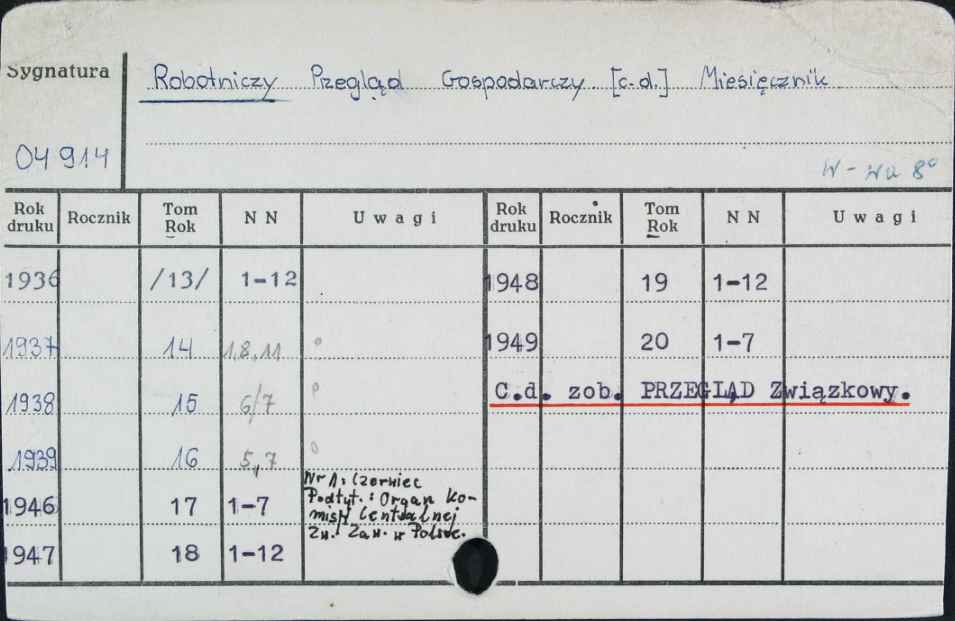 Sygnatura
Robotniczy Przegląd Gospodarczy. [c.d.] Miesięcznik.
04 914
W-wa 8°
Rok druku Rocznik Tom Rok N N Uwagi Rok druku Rocznik Tom Rok N N Uwagi
1936 /13/ 1-12 1948 19 1-12
1937 14 1,8,11 ° 1949 20 1-7
1938 15 6/7 ° C.d. zob. PRZEGLĄD Związkowy.
1939 16 5,7 °
Nr 1: Czerwiec
1946 17 1-7 Podtyt.: Organ Ko-
misji Centralnej
Zw. Zaw. w Polsce.
1947 18 1-12